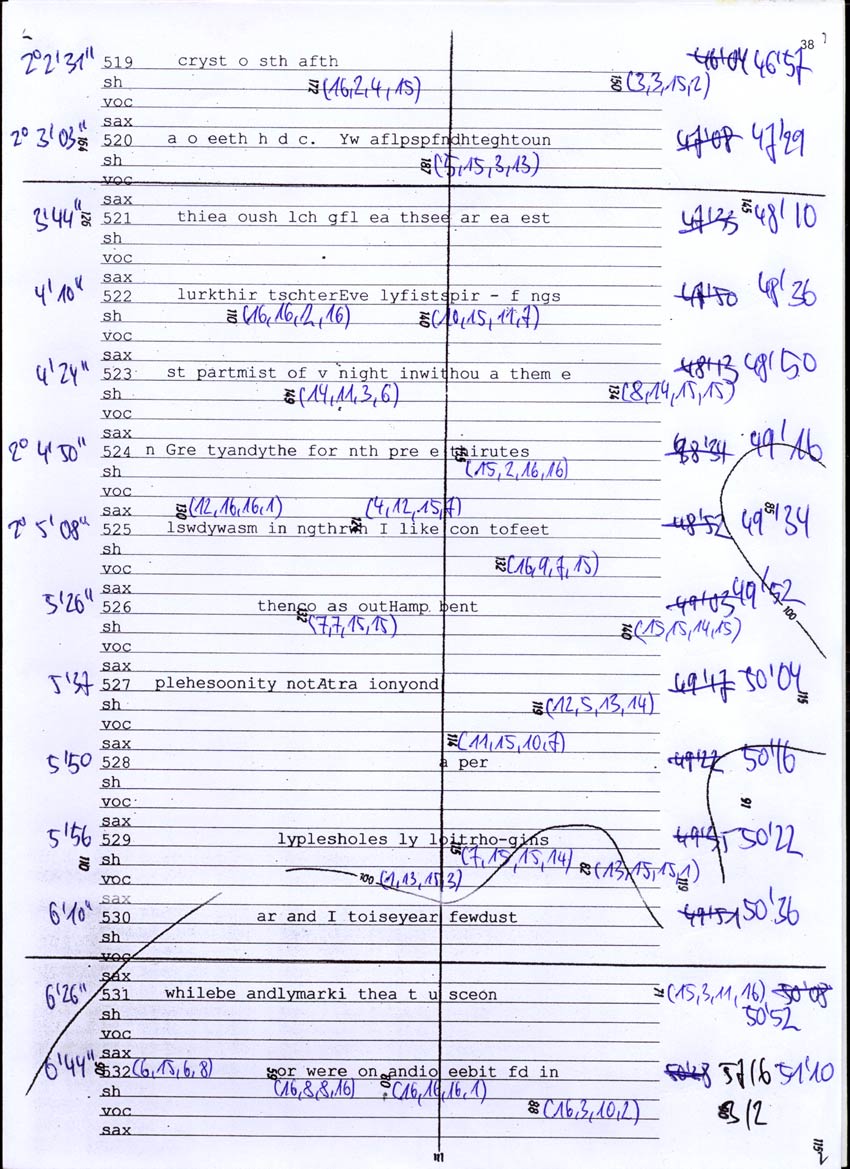 38
2°2'31" 519 cryst o sth afth 46'04 46'57
sh 172 (16,2,4,15) 150 (3,3,15,2)
voc
sax
2° 3'03" 164 520 a o eeth h d c. Yw aflpspfndhteghtoun 47'08 47'29
sh 187 (5,15,3,13)
voc
sax
3'44" 126 521 thiea oush lch gfl ea thsee ar ea est 145 48'10
sh
voc
sax
4'10" 522 lurkthir tschterEve lyfistspir - f ngs 48'36
sh 110 (16,16,2,16) 140 (10,15,11,7)
voc
sax
4'24" 523 st partmist of v night inwithou a them e 48'13 48'50
sh 149 (14,11,3,6) 134 (8,14,15,15)
voc
sax
2° 4'50" 524 n Gre tyandythe for nth pre e thirutes 49'16
sh (15,2,16,16)
voc
sax 130 (12,16,16,1) (4,12,15,7)
2° 5'08" 525 lswdywasm in ngthrwh I like con tofeet 48'52 49'34 85
sh
voc 132 (16,9,7,15)
sax
5'26" 526 thenco as outHamp bent 49'03 49'52
sh 132 (7,7,15,15) 140 (15,15,14,15) 100
voc
sax
5'37 527 plehesoonity notAtra ionyond 49'17 50'04 115
sh 119 (12,5,13,14)
voc
sax 114 (11,15,10,7)
5'50 528 a per 49'22 50'16
sh
voc 91
sax
5'56 529 lyplesholes ly loitrho-gins 50'22
110 sh 115 (7,15,15,14) 82 (13,15,15,1)
voc 100 (1,13,15,3) 119
sax
6'10" 530 ar and I toiseyear fewdust 49'51 50'36
sh
voc
sax
6'26" 531 whilebe andlymarki thea t u sceon 71 (15,3,11,16) 50'08
sh 50'52
voc
sax
6'44" 90 532 (6,15,6,8) or were on andio eebit fd in 50'28 51'10
sh 59 (16,8,8,16) 80 (16,16,16,1)
voc 88 (16,3,10,2) 3/2
sax
115